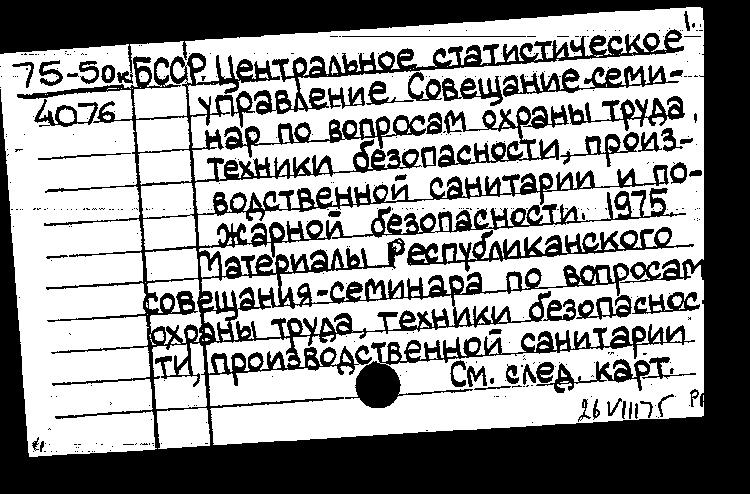 1.
75-50к БССР. Центральное статистическое
4076 управление. Совещание-семи-
нар по вопросам охраны труда,
техники безопасности, произ-
водственной санитарии и по-
жарной безопасности. 1975.
Материалы Республиканского
совещания-семинара по вопросам
охраны труда, техники безопаснос-
ти, производственной санитарии
См. след. карт.
26 VIII 75